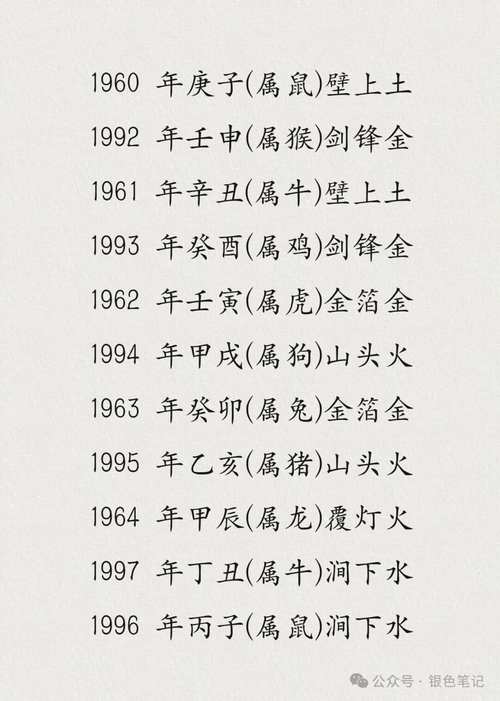 1960 年庚子(属鼠)壁上土
1992 年壬申(属猴)剑锋金
1961 年辛丑(属牛)壁上土
1993 年癸酉(属鸡)剑锋金
1962 年壬寅(属虎)金箔金
1994 年甲戌(属狗)山头火
1963 年癸卯(属兔)金箔金
1995 年乙亥(属猪)山头火
1964 年甲辰(属龙)覆灯火
1997 年丁丑(属牛)涧下水
1996 年丙子(属鼠)涧下水
公众号 · 银色笔记